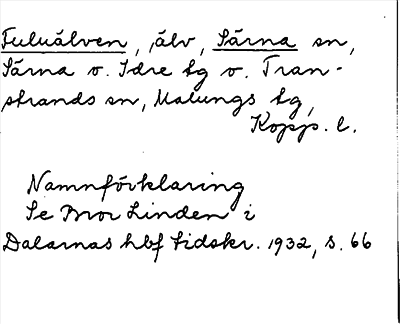 Fuluälven, älv, Särna sn,
Särna o. Idre tg o. Tran-
strands sn, Malungs tg,
Kopp. l.
Namnförklaring
Se Bror Linden i
Dalarnas hbf tidskr. 1932, s. 66